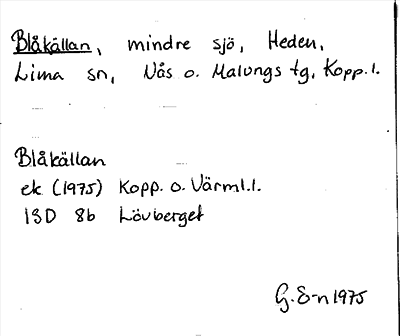 Blåkällan, mindre sjö, Heden,
Lima sn, Nås o. Malungs tg, Kopp.l.
Blåkällan
ek (1975) Kopp. o. Värml.l.
13D 8b Lövberget
G. E-n 1975